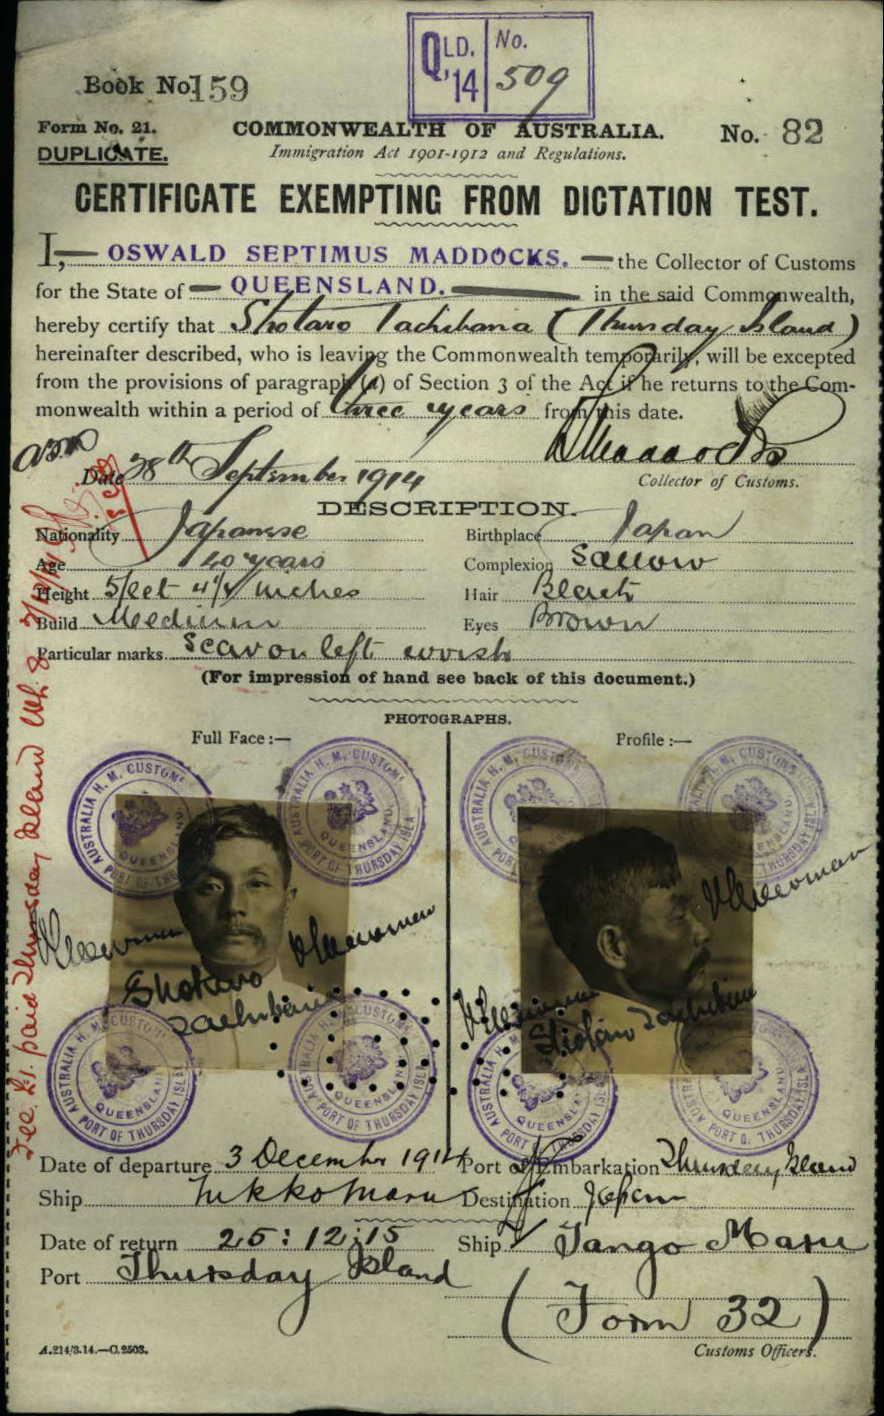 QLD. '14 No. 509
Book No. 159
Form No. 21. COMMONWEALTH OF AUSTRALIA. No. 82
DUPLICATE. Immigration Act 1901-1912 and Regulations.
CERTIFICATE EXEMPTING FROM DICTATION TEST.
I, OSWALD SEPTIMUS MADDOCKS. the Collector of Customs
for the State of QUEENSLAND. in the said Commonwealth,
hereby certify that Shotaro Tachibana (Thursday Island)
hereinafter described, who is leaving the Commonwealth temporarily, will be excepted
from the provisions of paragraph (a) of Section 3 of the Act if he returns to the Com-
monwealth within a period of three years from this date.
OSMaddocks
Date 28th September 1914 Collector of Customs.
DESCRIPTION.
Nationality Japanese Birthplace Japan
Age 40 years Complexion Sallow
Height 5 feet 4 1/4 inches Hair Black
Build Medium Eyes Brown
Particular marks Scar on left wrist
(For impression of hand see back of this document.)
PHOTOGRAPHS.
Full Face:— Profile:—
AUSTRALIA H. M. CUSTOMS PORT OF THURSDAY ISLD QUEENSLAND
Shotaro Tachibana
Shotaro Tachibana
Fee £1. paid Thursday Island
Date of departure 3 December 1914 Port of Embarkation Thursday Island
Ship Nikko Maru Destination Japan
Date of return 25:12:15 Ship Tango Maru
Port Thursday Island
(Form 32)
A.214/3.14.—C.2503. Customs Officers.